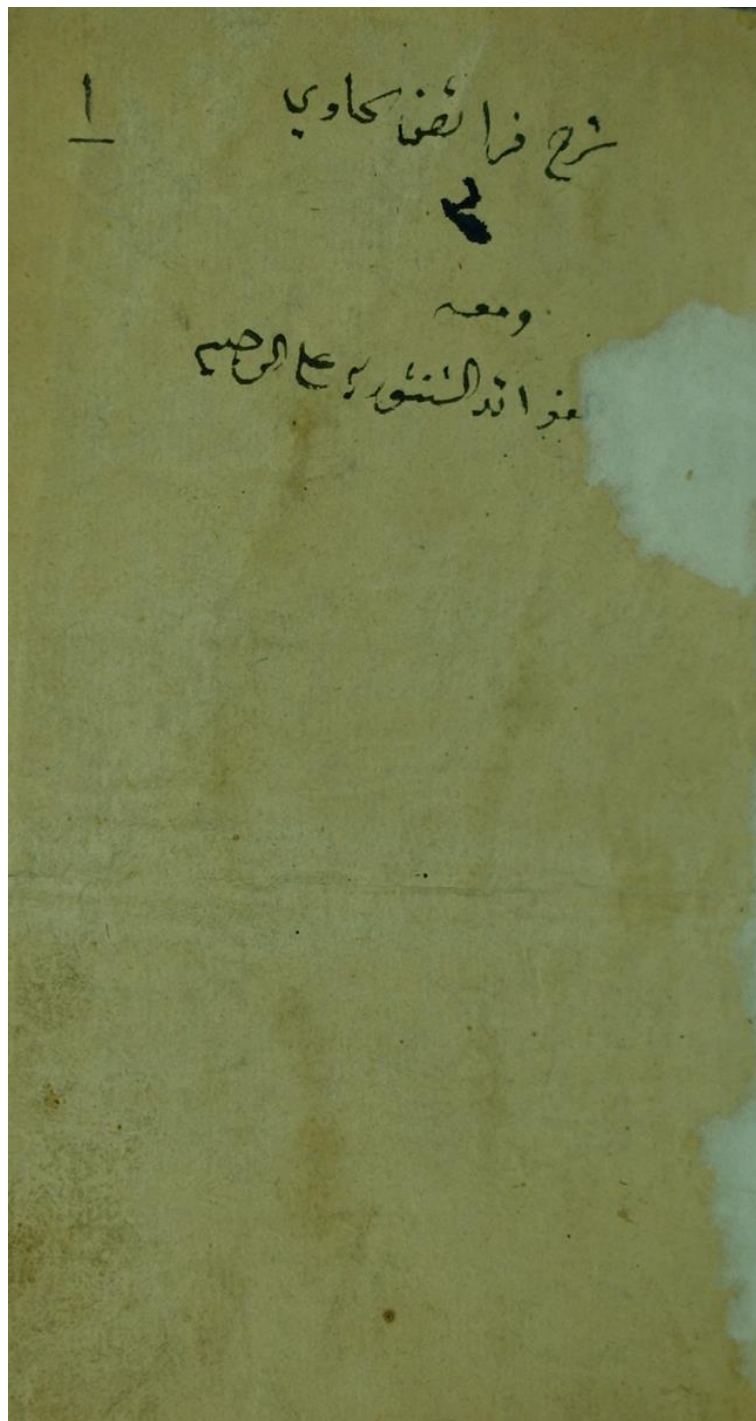 شرح فرائض الحاوي
١
ومعه
فوائد الشنشوريه على الرحبيه